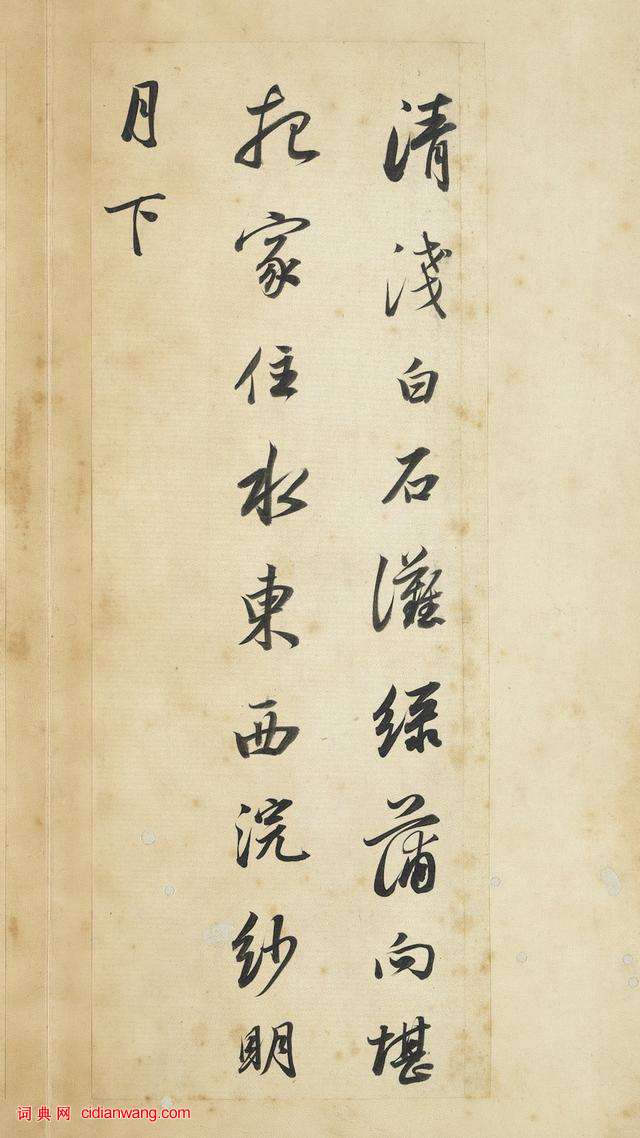 清淺白石灘綠蒲向堪
把家住水東西浣紗明
月下
词典网 cidianwang.com